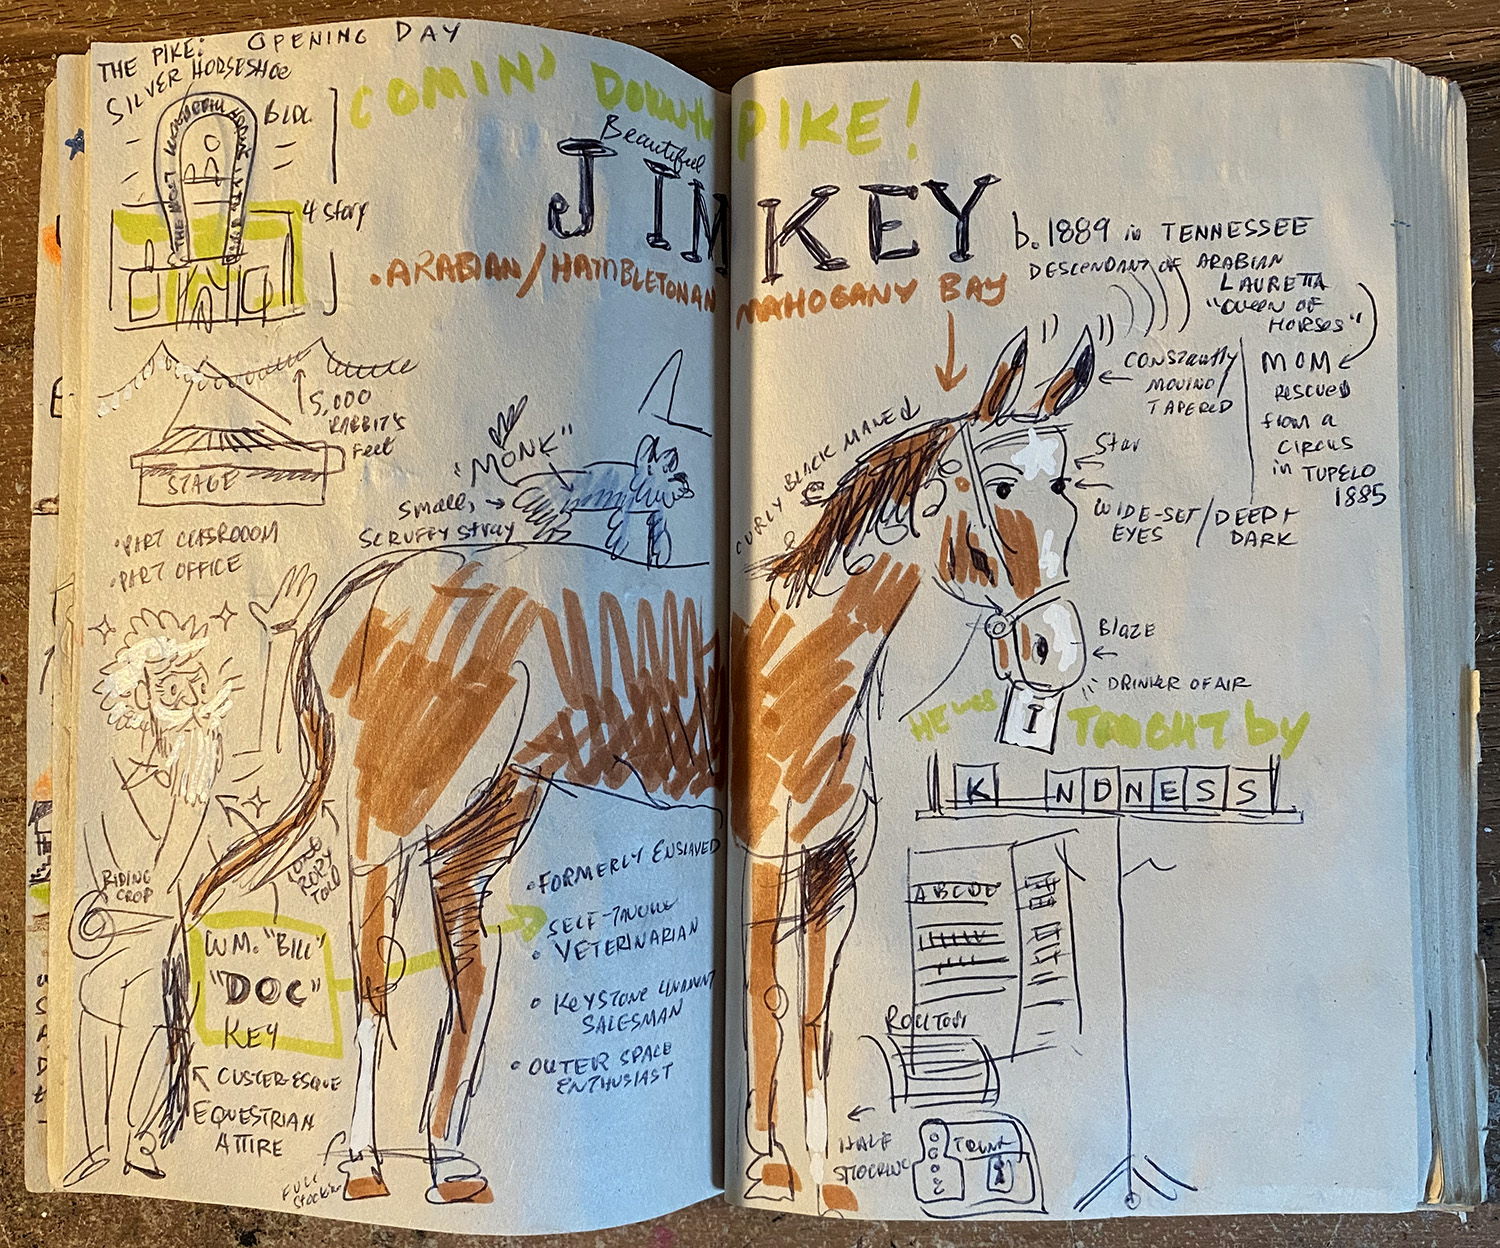 THE PIKE: OPENING DAY
SILVER HORSESHOE
BLDG.
4 Story
COMIN' DOWN PIKE!
Beautiful
JIM KEY
• ARABIAN/HAMBLETONAN
MAHOGANY BAY
b. 1889 in TENNESSEE
DESCENDANT OF ARABIAN
LAURETTA
"QUEEN OF
HORSES"
MOM
RESCUED
from a
CIRCUS
in TUPELO
1885
CONSTANTLY
MOVING/
TAPERED
Star
WIDE-SET/
EYES
DEEP +
DARK
Blaze
DRINKER OF AIR
CURLY BLACK MANED
5,000
RABBIT'S
Feet
STAGE
• PART CLASSROOM
• PART OFFICE
"MONK"
Small,
SCRUFFY STRAY
HE was TAUGHT by
I
K NDNESS
ABCDE
ROLLTOP
TRUNK
HALF
STOCKING
RIDING
CROP
LONG
ROPY
WM. "BILL"
"DOC"
KEY
CUSTER-ESQUE
EQUESTRIAN
ATTIRE
FULL
• FORMERLY ENSLAVED
SELF-TAUGHT
• VETERINARIAN
• KEYSTONE LINIMENT
SALESMAN
• OUTER SPACE
ENTHUSIAST